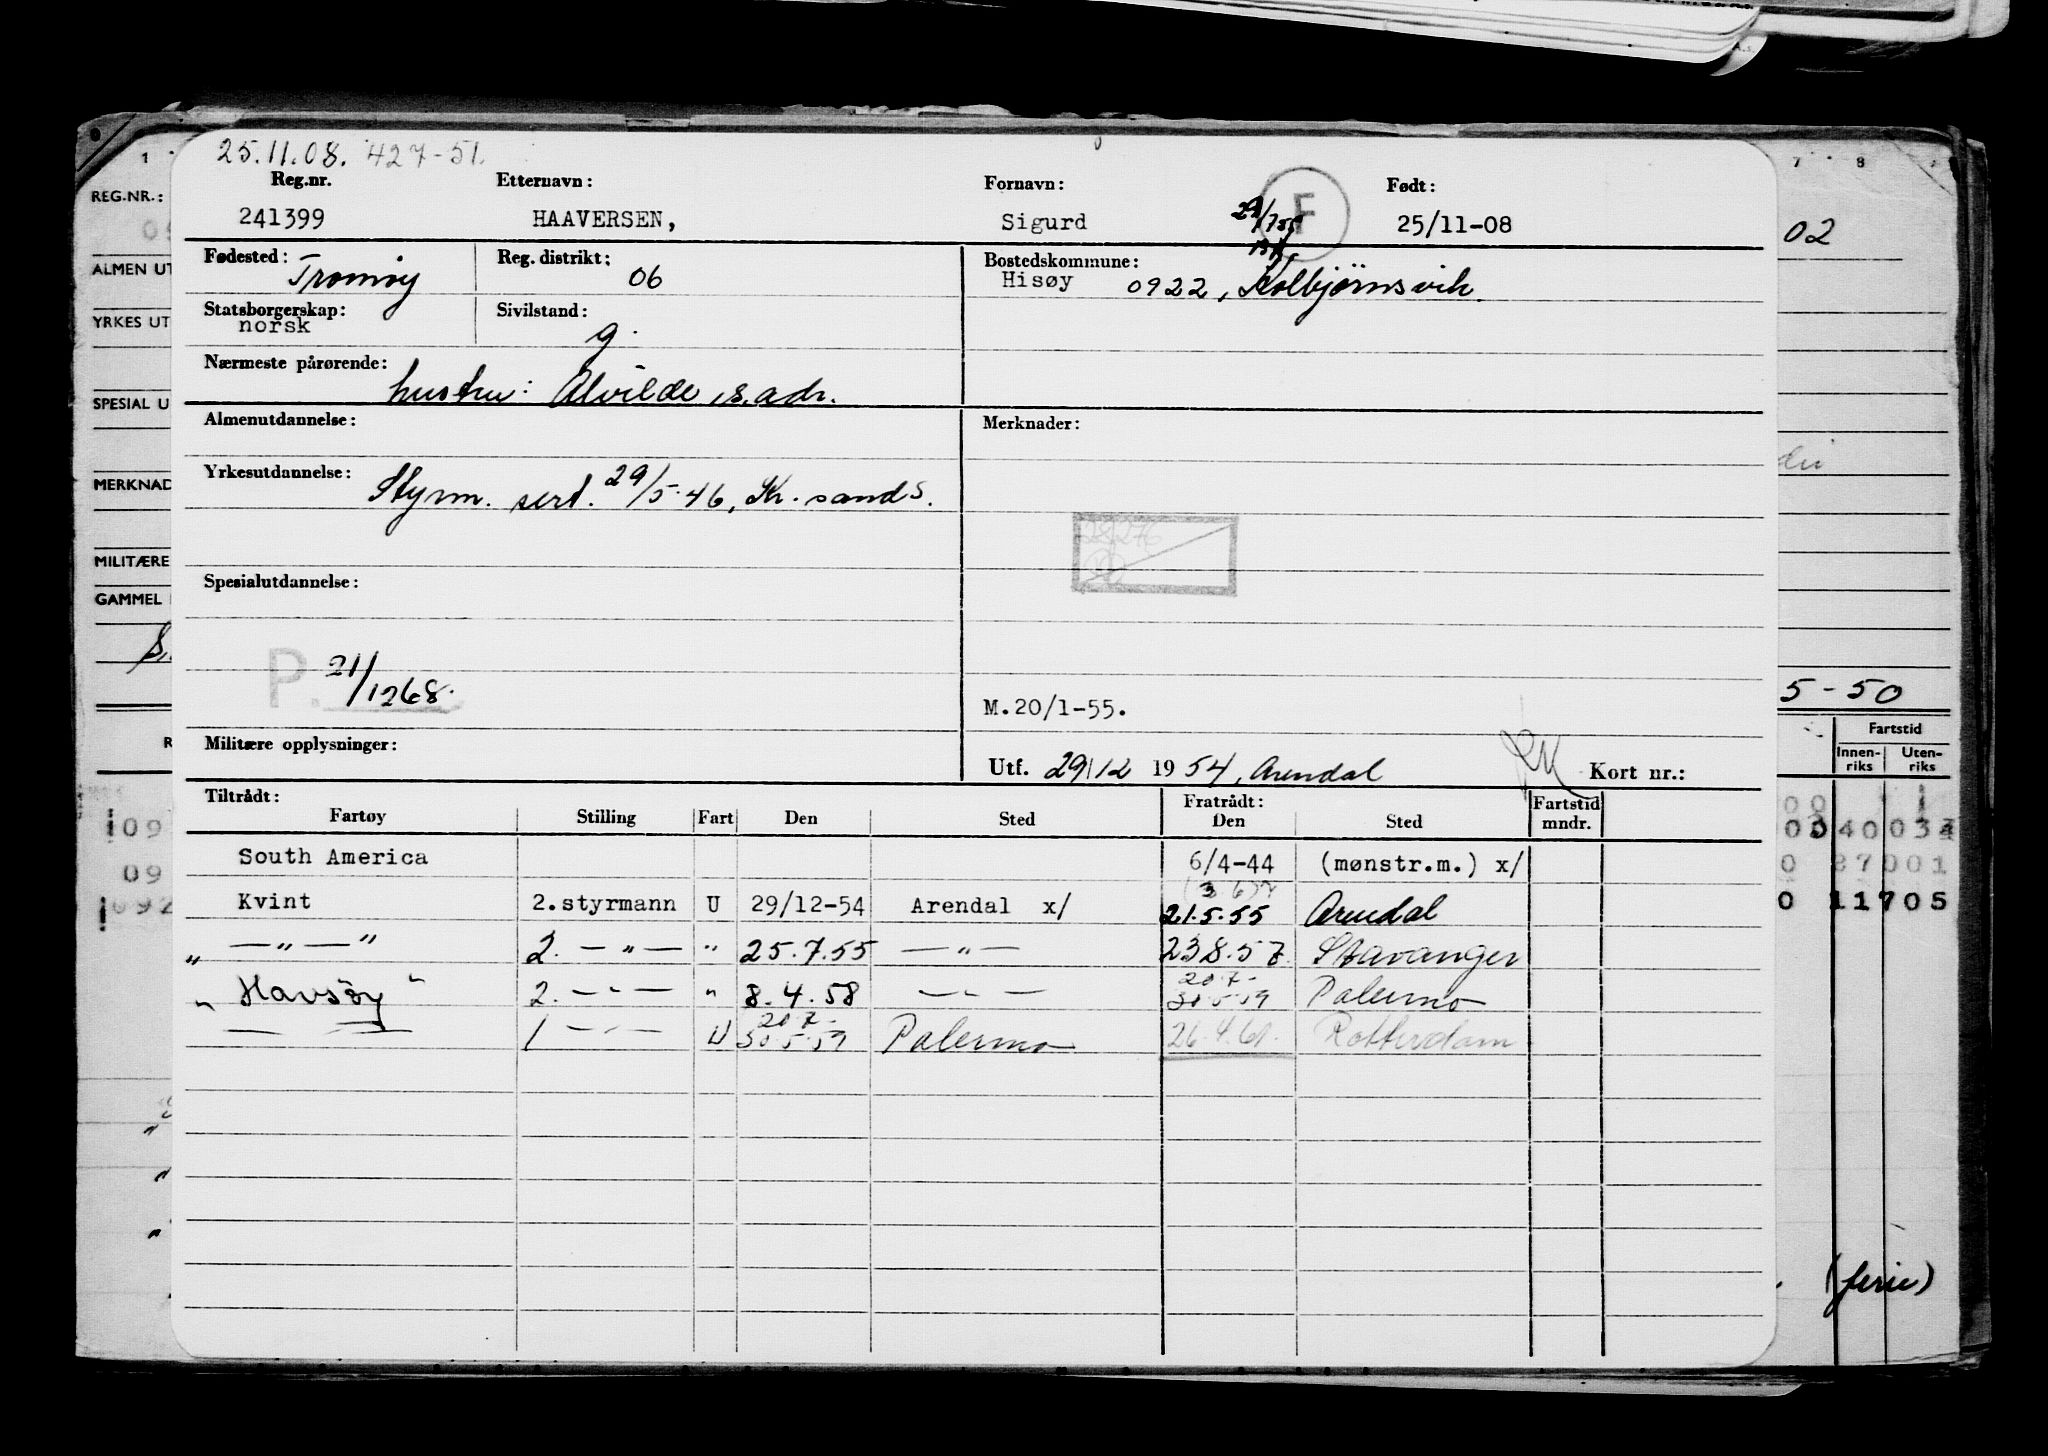 25.11.08. 427-51.
Reg.nr. Etternavn: Fornavn: Født:
241399 HAAVERSEN, Sigurd F 25/11-08
Fødested: Tromøy Reg. distrikt: 06 Bostedskommune:
Hisøy 0922, Kolbjørnsvik.
Statsborgerskap: norsk Sivilstand: g.
Nærmeste pårørende: hustru: Alvilde, s. adr.
Almenutdannelse: Merknader:
Yrkesutdannelse: Styrm. sert. 29/5-46, Kr.sand S.
28276
Spesialutdannelse:
P. 21/1268.
M.20/1-55.
Militære opplysninger: Utf. 29/12 1954, Arendal Kort nr.:
Tiltrådt: Fratrådt: Fartstid
Fartøy Stilling Fart Den Sted Den Sted mndr.
South America 6/4-44 (mønstr.m.) x/
Kvint 2.styrmann U 29/12-54 Arendal x/ 21.5.55 Arendal
„ — „ — " 2. — „ — " 25.7.55 — „ — 23 8.57. Stavanger
„ Havsøy " 2. — „ — " 8.4.58 — „ — 20.7- 30.5.59 Palermo
— — 1 — „ — U 20.7- 30.5.59 Palermo 26.4.61. Rotterdam
REG.NR.:
ALMEN UT
YRKES UT
SPESIAL U
MERKNAD
MILITÆRE
GAMMEL
7 8
02
5-50
Fartstid
Innen-riks Uten-riks
0 11705
(ferie)